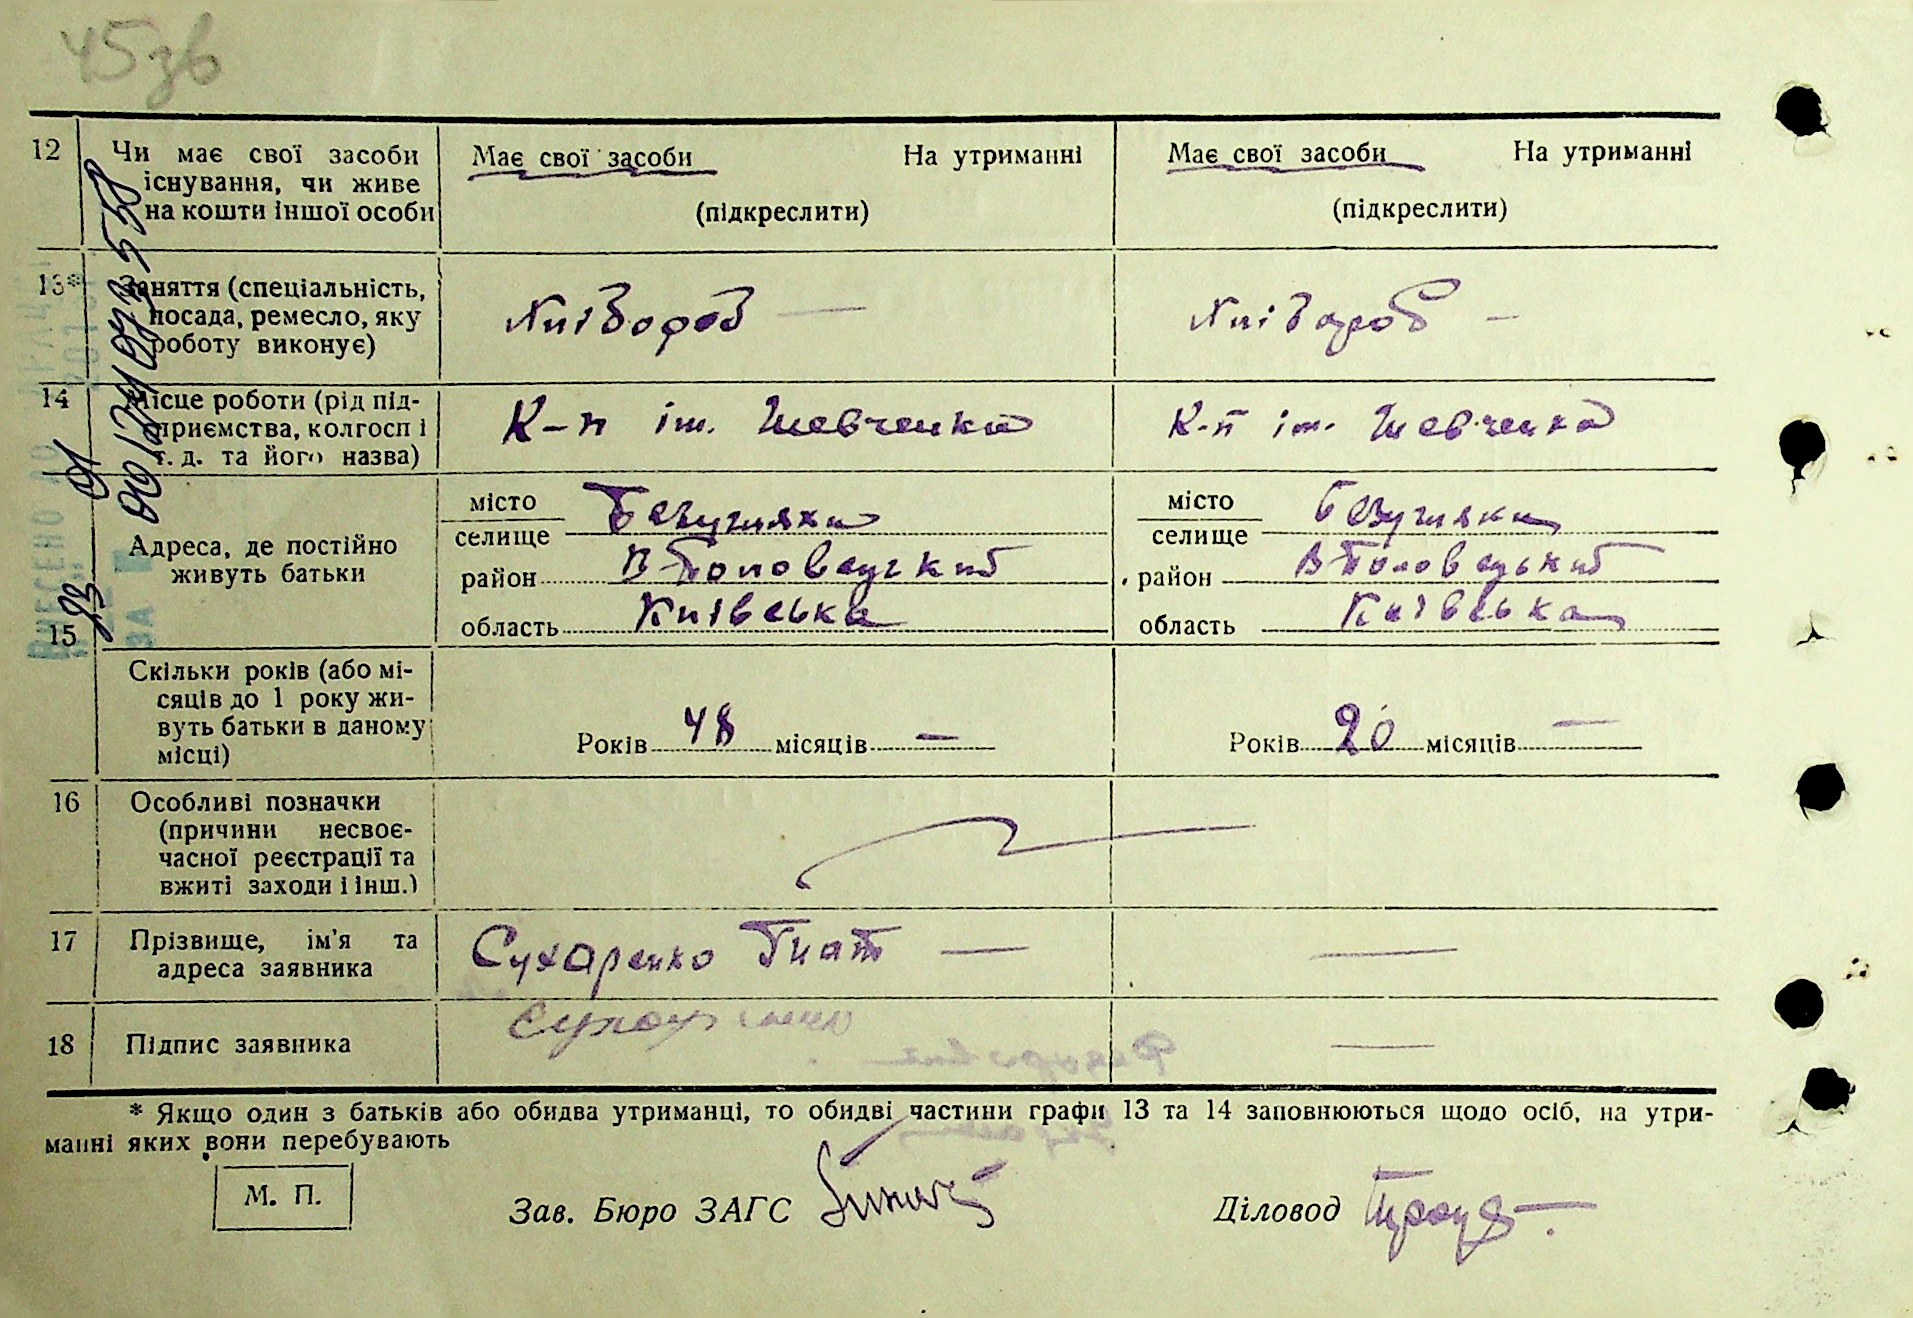 45зв
12 Чи має свої засоби існування, чи живе на кошти іншої особи
Має свої засоби На утриманні
(підкреслити)
Має свої засоби На утриманні
(підкреслити)
13* Заняття (спеціальність, посада, ремесло, яку роботу виконує)
Хлібороб —
Хлібороб —
14 Місце роботи (рід підприємства, колгосп і т. д. та його назва)
К-п ім. Шевченка
К-п ім. Шевченка
15 Адреса, де постійно живуть батьки
місто
селище Безугляки
район В-Половецький
область Київська
місто
селище Безугляки
район В-Половецький
область Київська
Скільки років (або місяців до 1 року живуть батьки в даному місці)
Років 48 місяців —
Років 20 місяців —
16 Особливі позначки (причини несвоєчасної реєстрації та вжиті заходи і інш.)
17 Прізвище, ім'я та адреса заявника
Сухаренко Гнат —
—
18 Підпис заявника
Сухаренко
—
* Якщо один з батьків або обидва утриманці, то обидві частини графи 13 та 14 заповнюються щодо осіб, на утри-
манні яких вони перебувають
М. П.
Зав. Бюро ЗАГС
Діловод